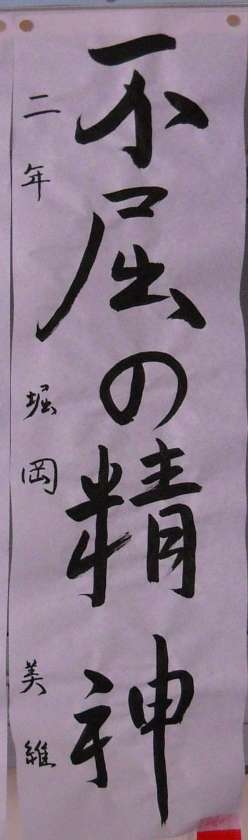 不屈の精神
二年 堀岡 美維